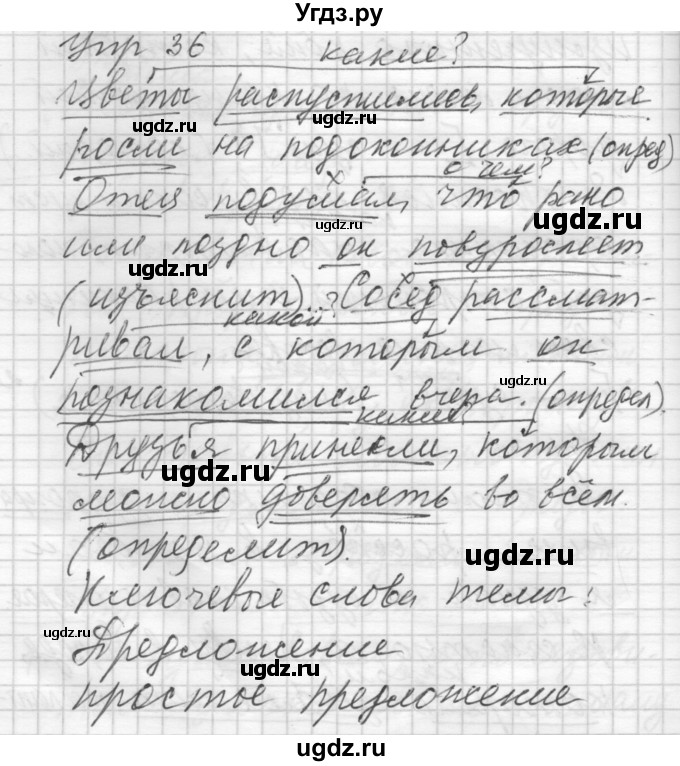 Угдз.ру
Упр 36 какие?
Цветы распустились, которые
росли на подоконниках (опред)
о чем?
Отец подумал, что рано
или поздно он повзрослеет
(изъяснит). Сосед рассмат-
какой?
ривал, с которым он
познакомился вчера. (определ).
какие?
Друзья принесли, которым
можно доверять во всём.
(определит).
Ключевые слова темы:
Предложение
простое предложение
ugdz.ru
ugdz.ru
ugdz.ru
ugdz.ru
ugdz.ru
ugdz.ru
ugdz.ru
ugdz.ru
ugdz.ru
ugdz.ru
ugdz.ru
ugdz.ru
ugdz.ru